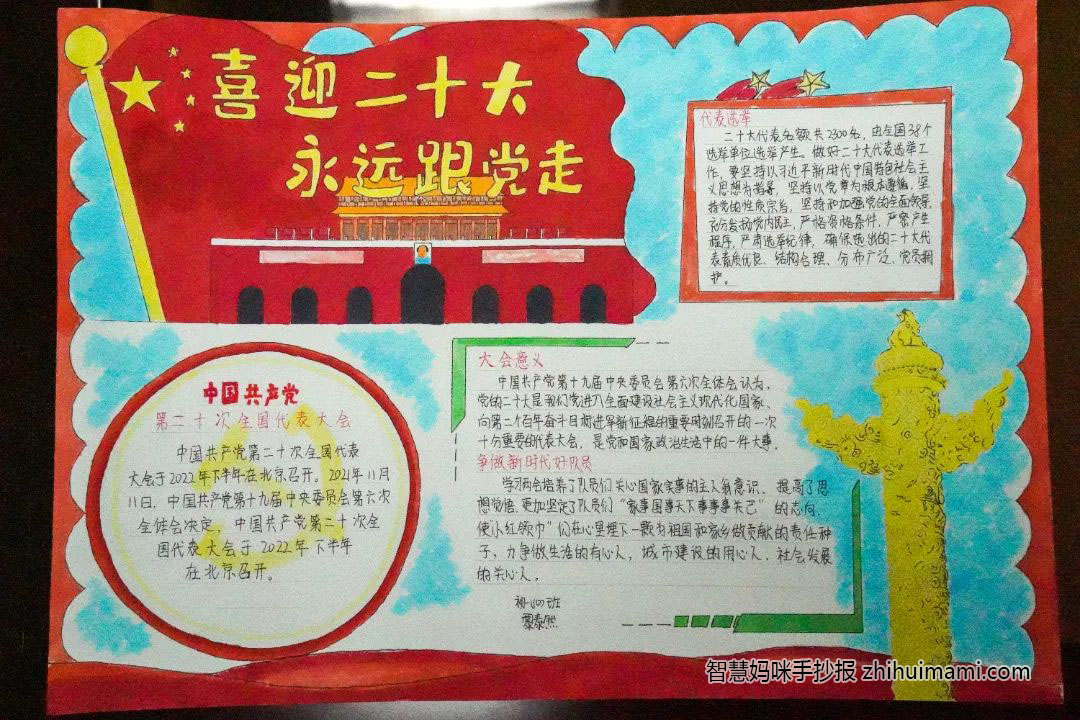 喜迎二十大
永远跟党走
代表选举
二十大代表名额共2300名，由全国38个
选举单位选举产生。做好二十大代表选举工
作，要坚持以习近平新时代中国特色社会主
义思想为指导，坚持以党章为根本遵循，坚
持党的性质宗旨，坚持和加强党的全面领导，
充分发扬党内民主，严格资格条件，严密产生
程序，严肃选举纪律，确保选出的二十大代
表素质优良、结构合理、分布广泛、党员拥
护。
中国共产党
第二十次全国代表大会
中国共产党第二十次全国代表
大会于2022年下半年在北京召开。2021年11月
11日，中国共产党第十九届中央委员会第六次
全体会决定，中国共产党第二十次全
国代表大会于2022年下半年
在北京召开。
大会意义
中国共产党第十九届中央委员会第六次全体会认为，
党的二十大是我们党进入全面建设社会主义现代化国家、
向第二个百年奋斗目标进军新征程的重要时刻召开的一次
十分重要的代表大会，是党和国家政治生活中的一件大事。
争做新时代好队员
学习两会培养了队员们关心国家实事的主人翁意识，提高了思
想觉悟，更加坚定了队员们“家事国事天下事事事关己”的志向，
使“小红领巾”们在心里埋下一颗为祖国和家乡做贡献的责任种
子、力争做生活的有心人，城市建设的用心人，社会发展
的关心人。
智慧妈咪手抄报 zhihuimami.com